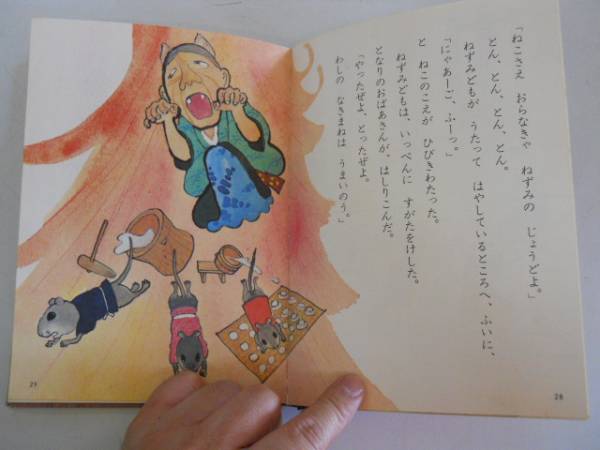 「ねこさえ　おらなきゃ　ねずみの　じょうどよ。」
とん、とん、とん、とん。
ねずみどもが　うたって　はやしているところへ、ふいに、
「にゃあーご、ふーっ。」
と　ねこのこえが　ひびきわたった。
ねずみどもは、いっぺんに　すがたをけした。
となりのおばあさんが、はしりこんだ。
「やったぜよ、とったぜよ。
わしの　なきまねは　うまいのう。」
28
29